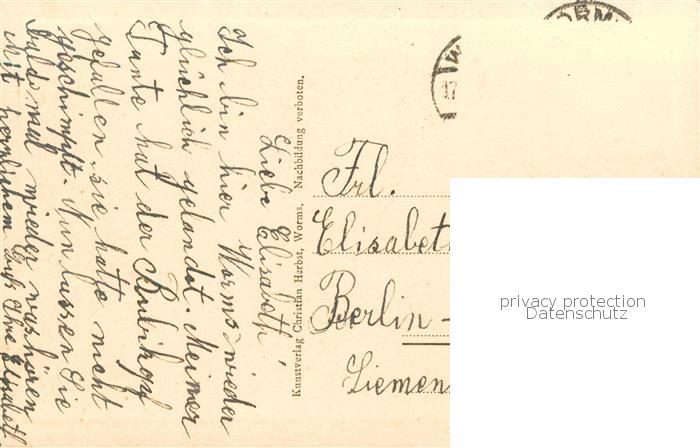 Liebe Elisabeth!
Ich bin hier Worms wieder
glücklich gelandet. Meiner
Tante hat der Bubikopf
gefallen, sie hatte nicht
geschimpft. Nun lassen Sie
bald mal wieder was hören
Mit herzlichem Gruß Ihre Elisabeth
Kunstverlag Christian Herbst, Worms. Nachbildung verboten.
Frl.
Elisabet
Berlin-
Siemens
privacy protection
Datenschutz